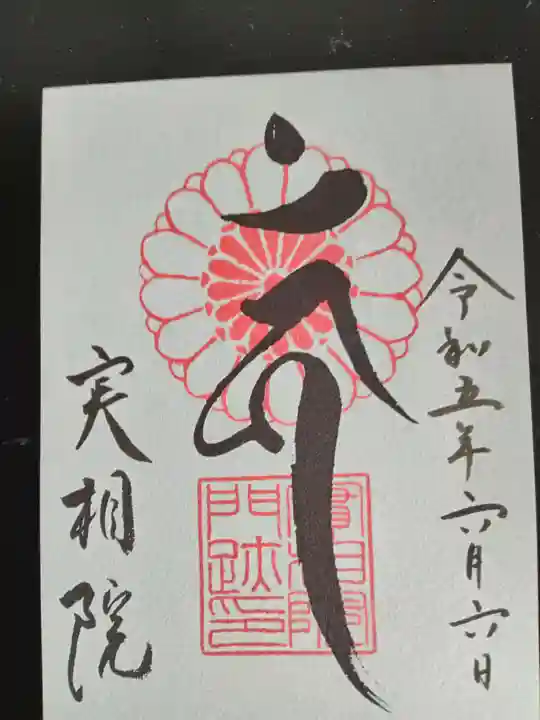 令和五年六月六日
カーン
実相院
實相院
門跡印